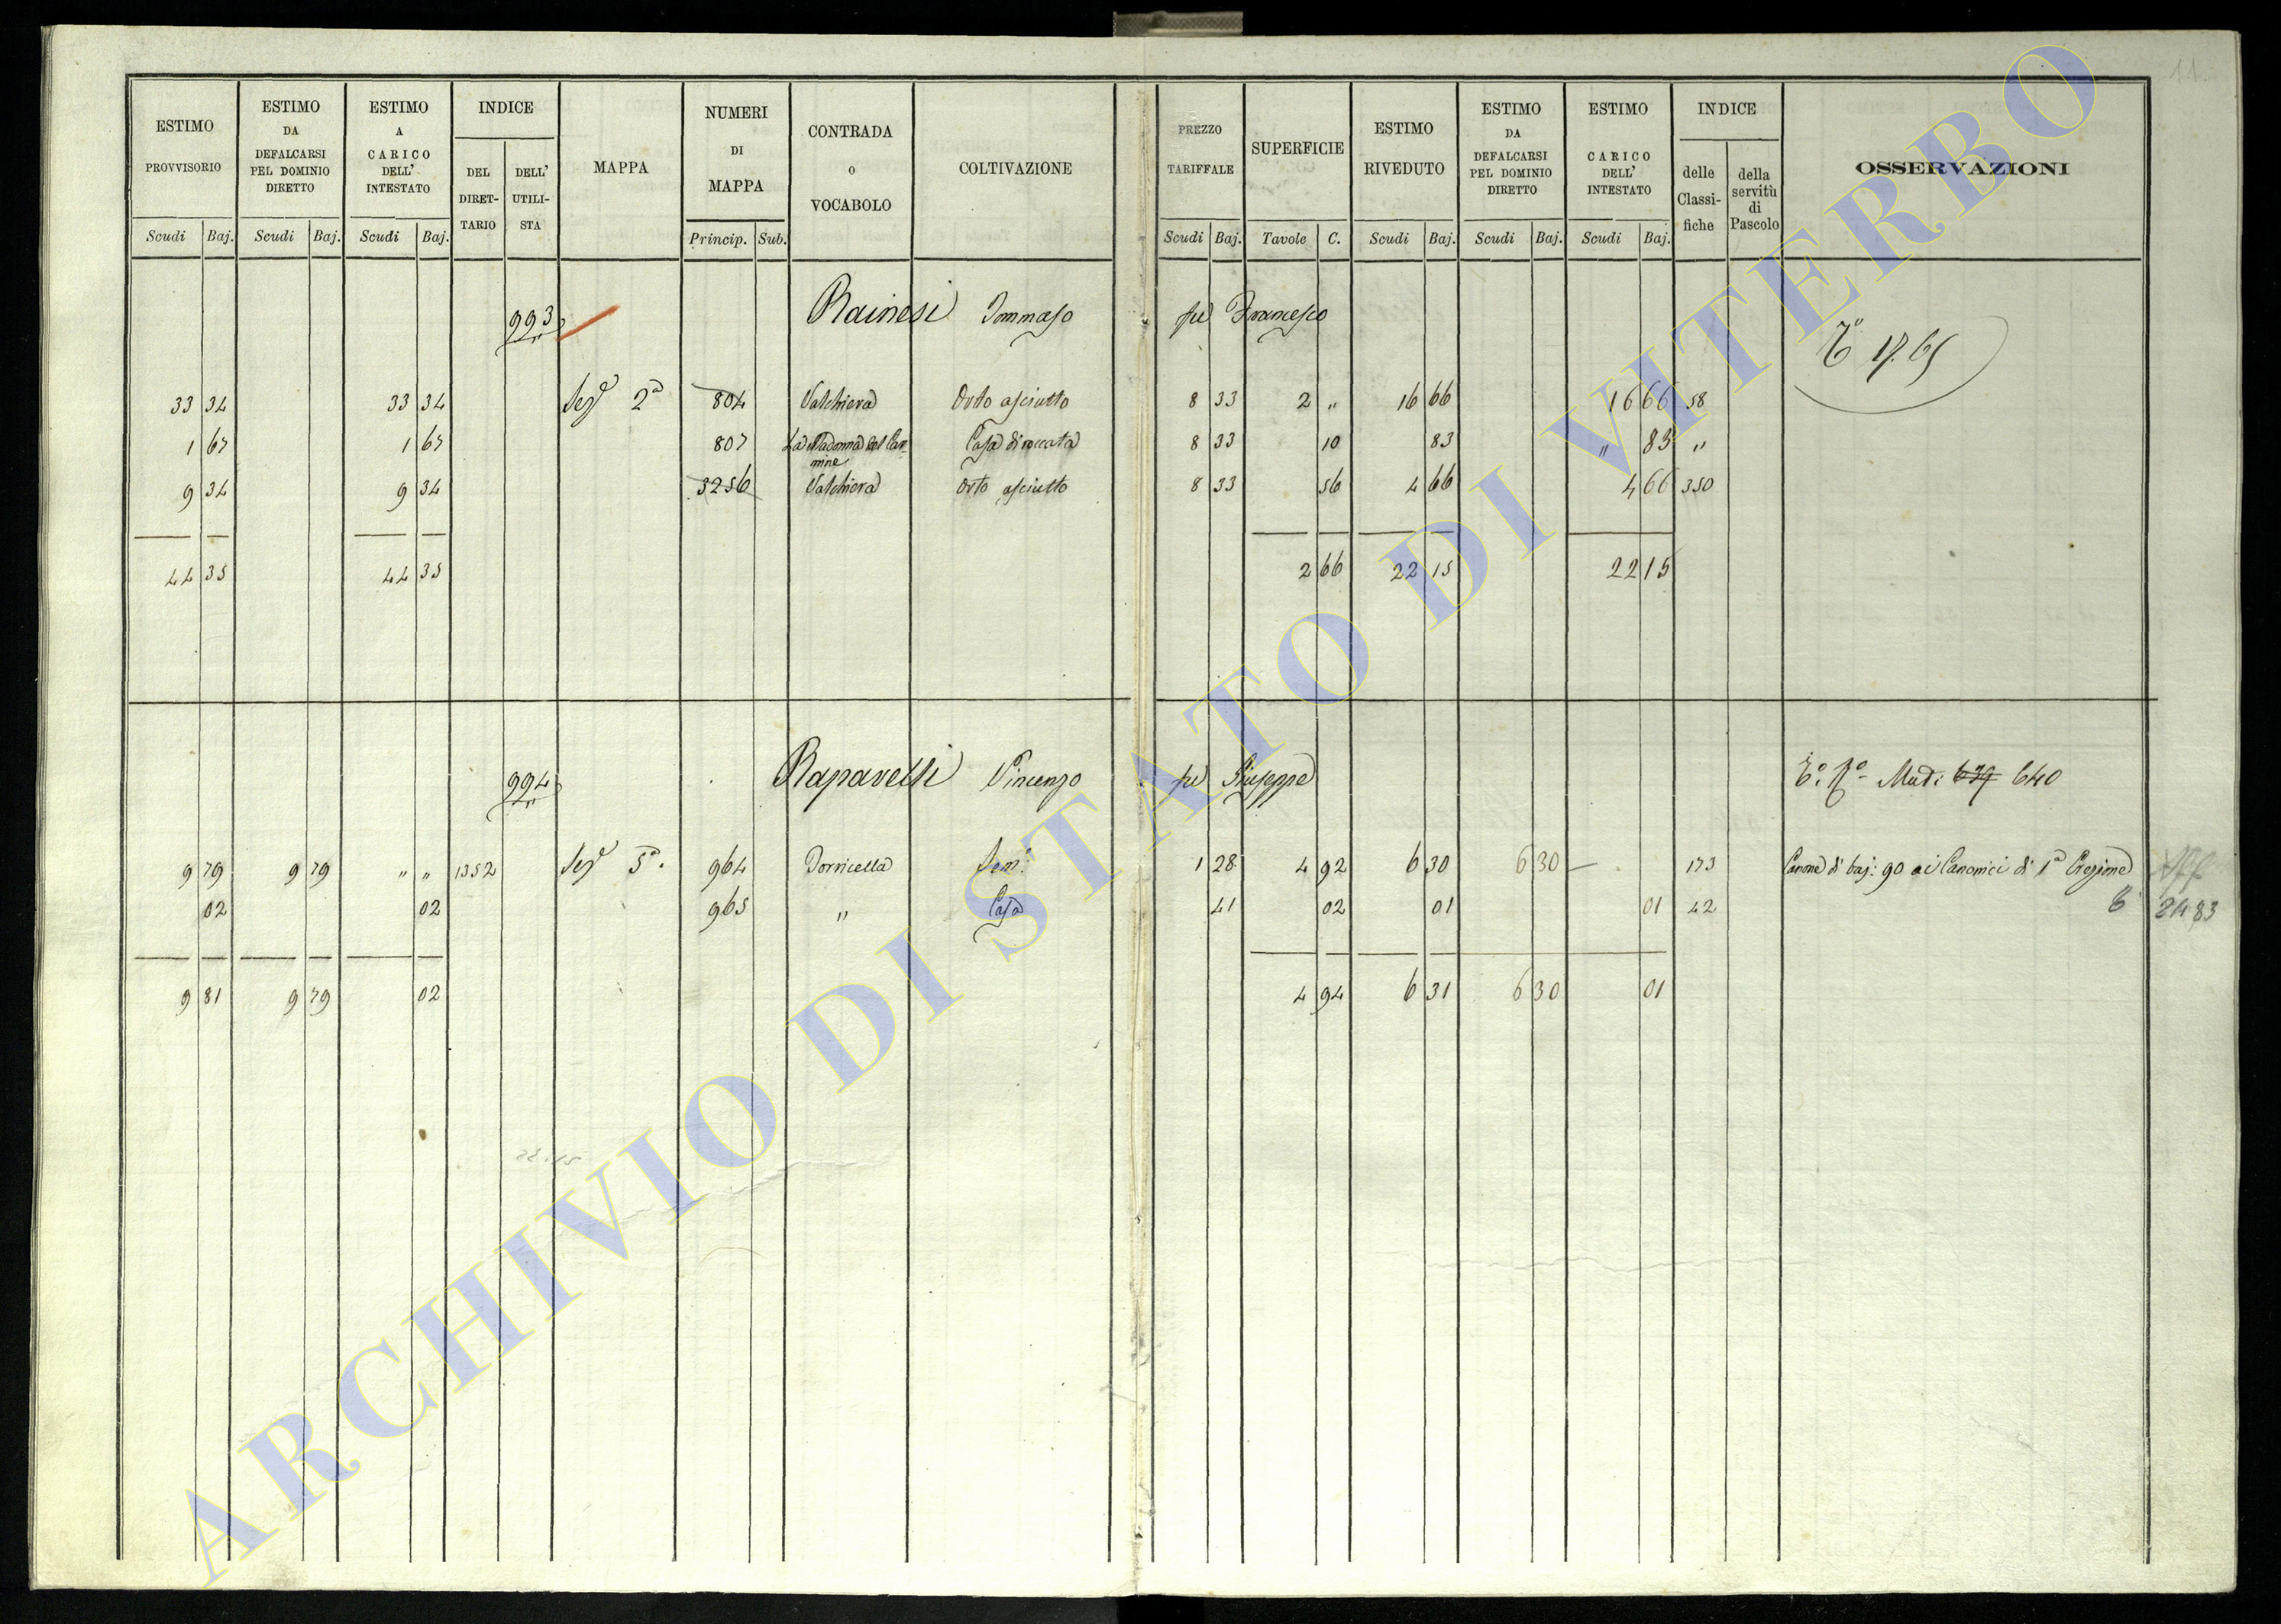 11.
ESTIMO PROVVISORIO
ESTIMO DA DEFALCARSI PEL DOMINIO DIRETTO
ESTIMO A CARICO DELL' INTESTATO
INDICE
DEL DIRET-TARIO
DELL' UTILI-STA
MAPPA
NUMERI DI MAPPA
CONTRADA o VOCABOLO
COLTIVAZIONE
PREZZO TARIFFALE
SUPERFICIE
ESTIMO RIVEDUTO
ESTIMO DA DEFALCARSI PEL DOMINIO DIRETTO
ESTIMO A CARICO DELL' INTESTATO
INDICE
delle Classi-fiche
della servitù di Pascolo
OSSERVAZIONI
Scudi Baj. Scudi Baj. Scudi Baj. Princip. Sub. Scudi Baj. Tavole C. Scudi Baj. Scudi Baj. Scudi Baj.
993 Rainesi Tommaso fu Francesco
33 34 33 34 Sez 2a 804 Valchiera Orto asciutto 8 33 2 " 16 66 16 66 58
1 67 1 67 807 La Madonna del Car-mine Casa diroccata 8 33 10 83 " 83 "
9 34 9 34 3256 Valchiera Orto asciutto 8 33 56 4 66 4 66 350
44 35 44 35 2 66 22 15 22 15
994 Raparelli Vincenzo fu Giuseppe 639 640
9 79 9 79 " " 1352 Sez 5a. 964 Torricella Sem: 1 28 4 92 6 30 6 30 — 173 Canone di baj: 90 ai Canonici di 1a Erezione
02 02 965 " Casa 41 02 01 01 42 2483
9 81 9 79 02 4 94 6 31 6 30 01
22.15
ARCHIVIO DI STATO DI VITERBO